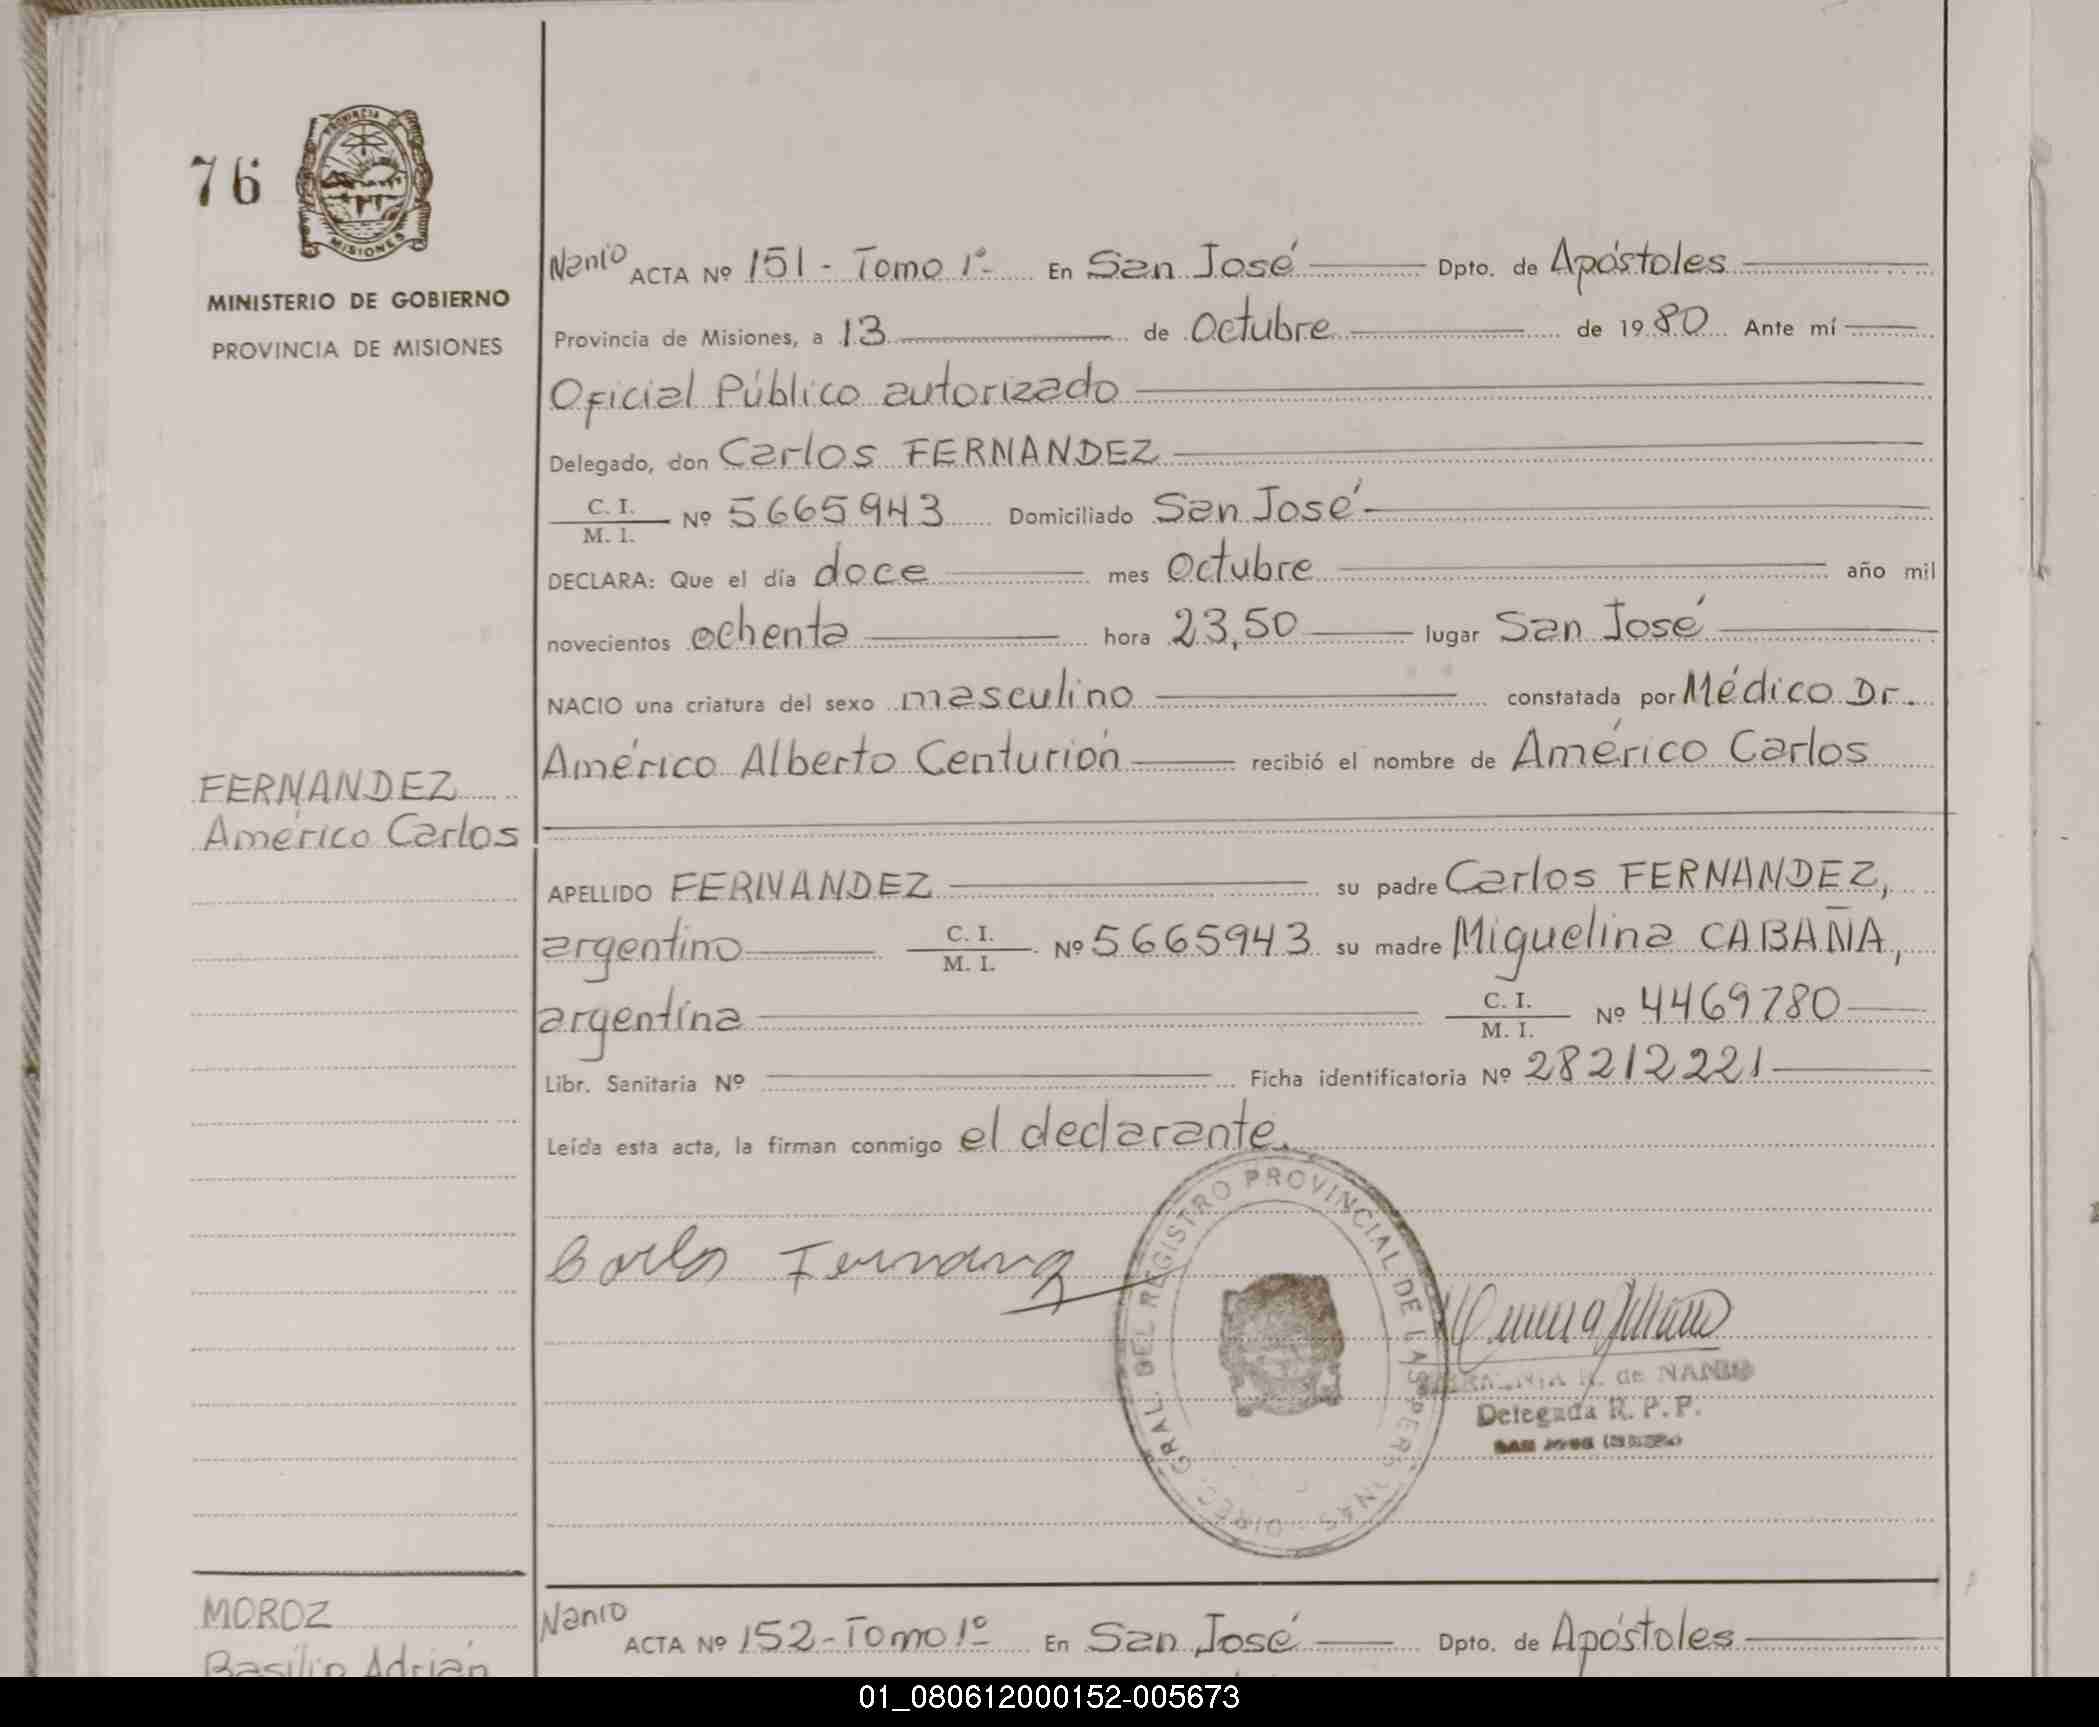 76
PROVINCIA
MISIONES
MINISTERIO DE GOBIERNO
PROVINCIA DE MISIONES
Nanio ACTA Nº 151 - Tomo 1º - En San José Dpto. de Apóstoles
Provincia de Misiones, a 13 de Octubre de 1980 Ante mí
Oficial Público autorizado
Delegado, don Carlos FERNANDEZ
C. I.
M. I. Nº 5665943 Domiciliado San José
DECLARA: Que el día doce mes Octubre año mil
novecientos ochenta hora 23,50 lugar San José
NACIO una criatura del sexo masculino constatada por Médico Dr.
Américo Alberto Centurión recibió el nombre de Américo Carlos
FERNANDEZ
Américo Carlos
APELLIDO FERNANDEZ su padre Carlos FERNANDEZ,
argentino C. I.
M. I. Nº 5665943 su madre Miguelina CABAÑA,
argentina C. I.
M. I. Nº 4469780
Libr. Sanitaria Nº Ficha identificatoria Nº 28212221
Leída esta acta, la firman conmigo el declarante.
Carlos Fernandez
DIREC. GRAL. DEL REGISTRO PROVINCIAL DE LAS PERSONAS
de NANIO
Delegada R. P. P.
SAN JOSE
MOROZ
Basilio Adrián
Nanio ACTA Nº 152 - Tomo 1º En San José Dpto. de Apóstoles
01_080612000152-005673